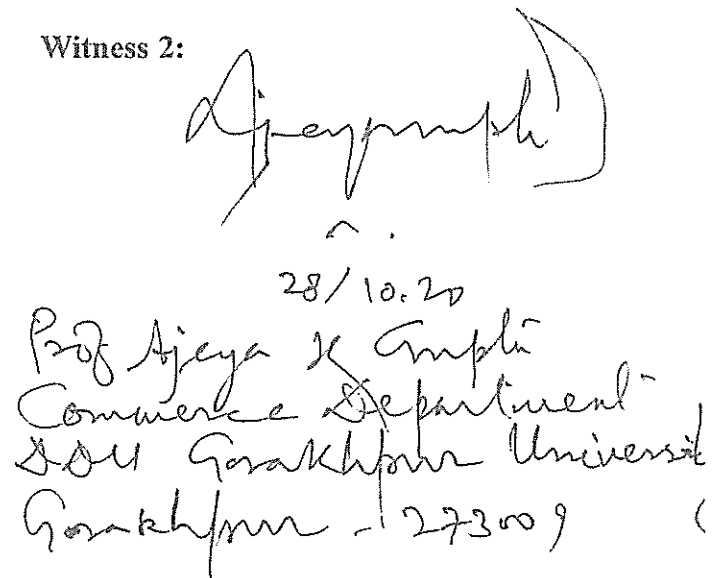 Witness 2:
28/10.20
Prof Ajeya K Gupta
Commerce Department
DDU Gorakhpur Universit
Gorakhpur - 273009